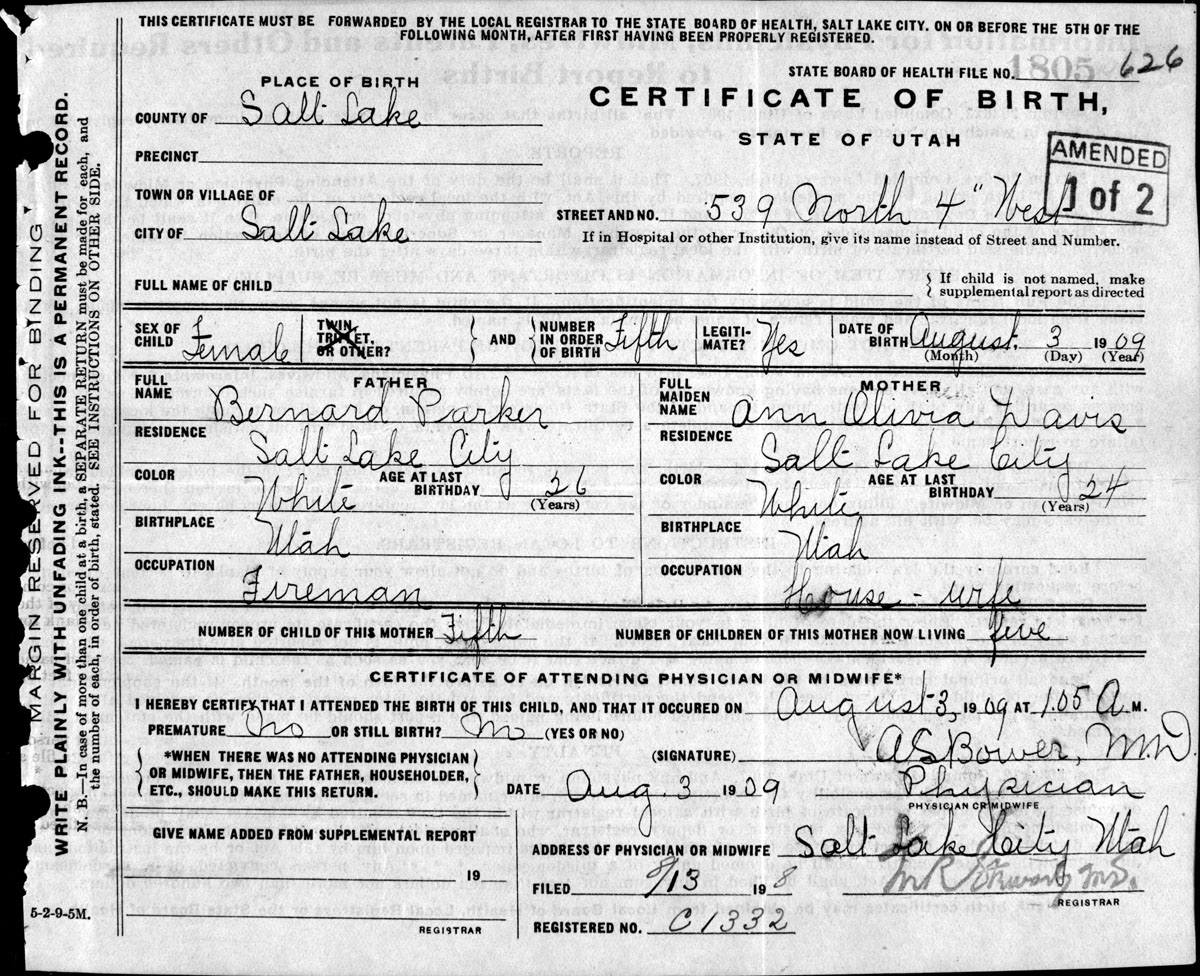 THIS CERTIFICATE MUST BE FORWARDED BY THE LOCAL REGISTRAR TO THE STATE BOARD OF HEALTH, SALT LAKE CITY, ON OR BEFORE THE 5TH OF THE
FOLLOWING MONTH, AFTER FIRST HAVING BEEN PROPERLY REGISTERED.
STATE BOARD OF HEALTH FILE NO. 1805 626
PLACE OF BIRTH
CERTIFICATE OF BIRTH,
STATE OF UTAH
AMENDED
1 of 2
COUNTY OF Salt Lake
PRECINCT
TOWN OR VILLAGE OF
STREET AND NO. 539 North 4" West
CITY OF Salt Lake
If in Hospital or other Institution, give its name instead of Street and Number.
FULL NAME OF CHILD
If child is not named, make
supplemental report as directed
SEX OF CHILD Female
TWIN, TRIPLET, OR OTHER?
AND NUMBER IN ORDER OF BIRTH Fifth
LEGITIMATE? Yes
DATE OF BIRTH August 3 1909
(Month) (Day) (Year)
FATHER
FULL NAME Bernard Parker
RESIDENCE Salt Lake City
COLOR White
AGE AT LAST BIRTHDAY 26
(Years)
BIRTHPLACE Utah
OCCUPATION Fireman
MOTHER
FULL MAIDEN NAME Ann Olivia Davis
RESIDENCE Salt Lake City
COLOR White
AGE AT LAST BIRTHDAY 24
(Years)
BIRTHPLACE Utah
OCCUPATION House-wife
NUMBER OF CHILD OF THIS MOTHER Fifth NUMBER OF CHILDREN OF THIS MOTHER NOW LIVING five
CERTIFICATE OF ATTENDING PHYSICIAN OR MIDWIFE*
I HEREBY CERTIFY THAT I ATTENDED THE BIRTH OF THIS CHILD, AND THAT IT OCCURED ON August 3, 1909 AT 1.05 A. M.
PREMATURE No OR STILL BIRTH? No (YES OR NO)
*WHEN THERE WAS NO ATTENDING PHYSICIAN
OR MIDWIFE, THEN THE FATHER, HOUSEHOLDER,
ETC., SHOULD MAKE THIS RETURN.
(SIGNATURE) A S Bower, MD
DATE Aug. 3 1909 Physician
PHYSICIAN OR MIDWIFE
GIVE NAME ADDED FROM SUPPLEMENTAL REPORT
19
REGISTRAR
ADDRESS OF PHYSICIAN OR MIDWIFE Salt Lake City Utah
FILED 8/13 198
REGISTRAR
REGISTERED NO. C1332
5-2-9-5M.
MARGIN RESERVED FOR BINDING
WRITE PLAINLY WITH UNFADING INK--THIS IS A PERMANENT RECORD.
N. B.--In case of more than one child at a birth, a SEPARATE RETURN must be made for each, and
the number of each, in order of birth, stated. SEE INSTRUCTIONS ON OTHER SIDE.